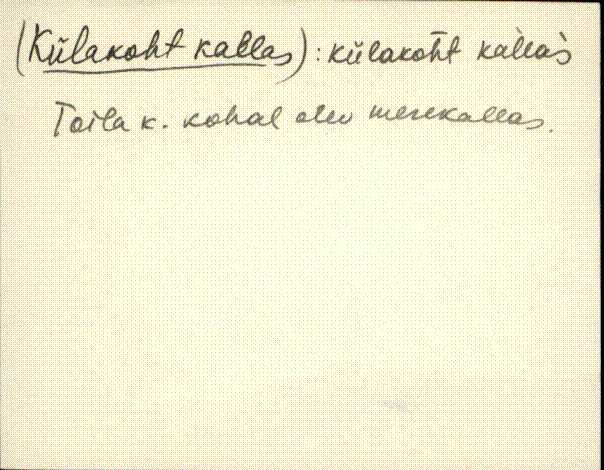 (Külakoht kallas) : külakoh̄t kàllas̀
Toila k. kohal olev merekallas.